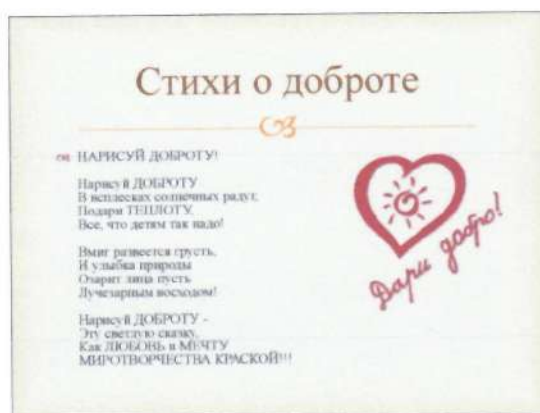 Стихи о доброте
НАРИСУЙ ДОБРОТУ!
Нарисуй ДОБРОТУ
В всплесках солнечных радуг,
Подари ТЕПЛОТУ,
Все, что детям так надо!
Вмиг развеется грусть,
И улыбка природы
Озарит лица пусть
Лучезарным восходом!
Нарисуй ДОБРОТУ -
Эту светлую сказку,
Как ЛЮБОВЬ и МЕЧТУ
МИРОТВОРЧЕСТВА КРАСКОЙ!!!
Дари добро!